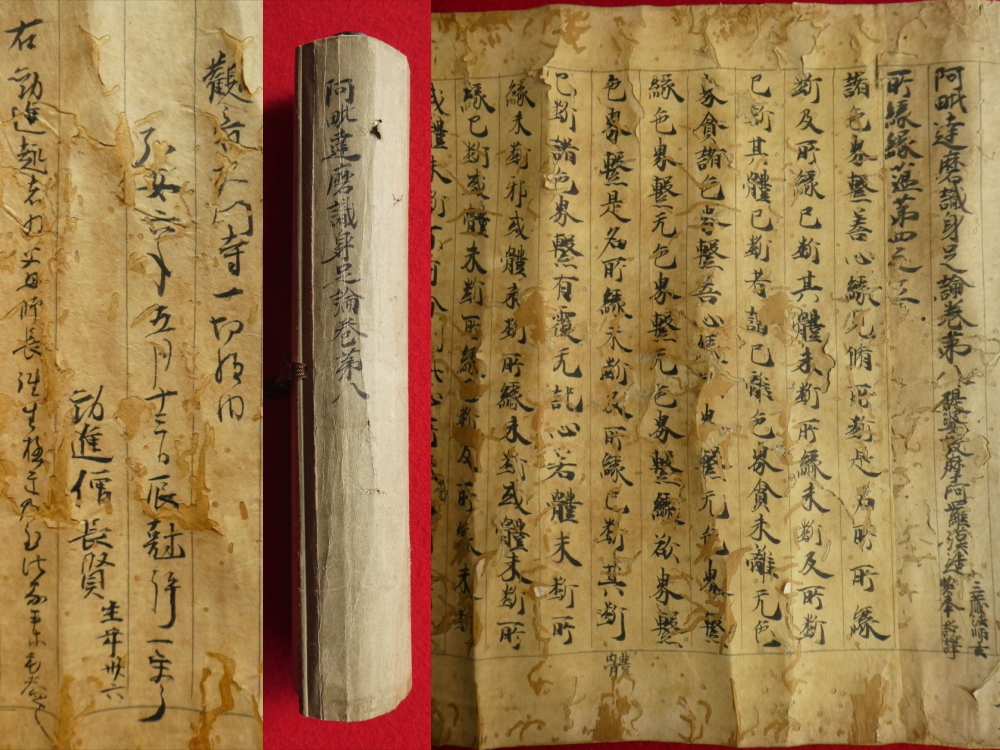 阿毗達磨識身足論卷第八 提婆設摩阿羅漢造 三藏法師玄奘奉 詔譯
所緣緣蘊第四之三
諸色界繫善心緣見脩所斷是名所所緣
斷及所緣已斷其體未斷所緣未斷及所斷
已斷其體已斷者謂已離色界貪未離无色
界貪諸色界繫善心緣 界繫无色界繫
緣色界繫无色界繫无色界繫緣欲界繫
色界繫是名所緣未斷及所緣已斷其斷
已斷諸色界繫有覆无記心若體未斷所
緣未斷邪或體未斷所緣未斷或體未斷所
緣已斷或體未斷所緣 斷及所緣未斷
或體未斷
阿毗達磨識身足論卷第八
寺一切經内
弘安六年五月十三日辰尅許一交了
勸進僧長賢 生年卅六
右勸進趣者為父母師長往生極